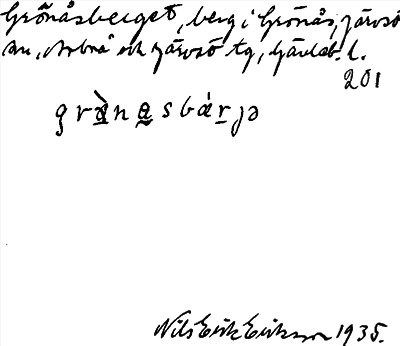 Grönåsberget, berg i Grönås, Järvsö
sn, Arbrå och Järvsö tg, Gävleb. l.
201
grànasbárjə
Nils Erik Eriksson 1935.